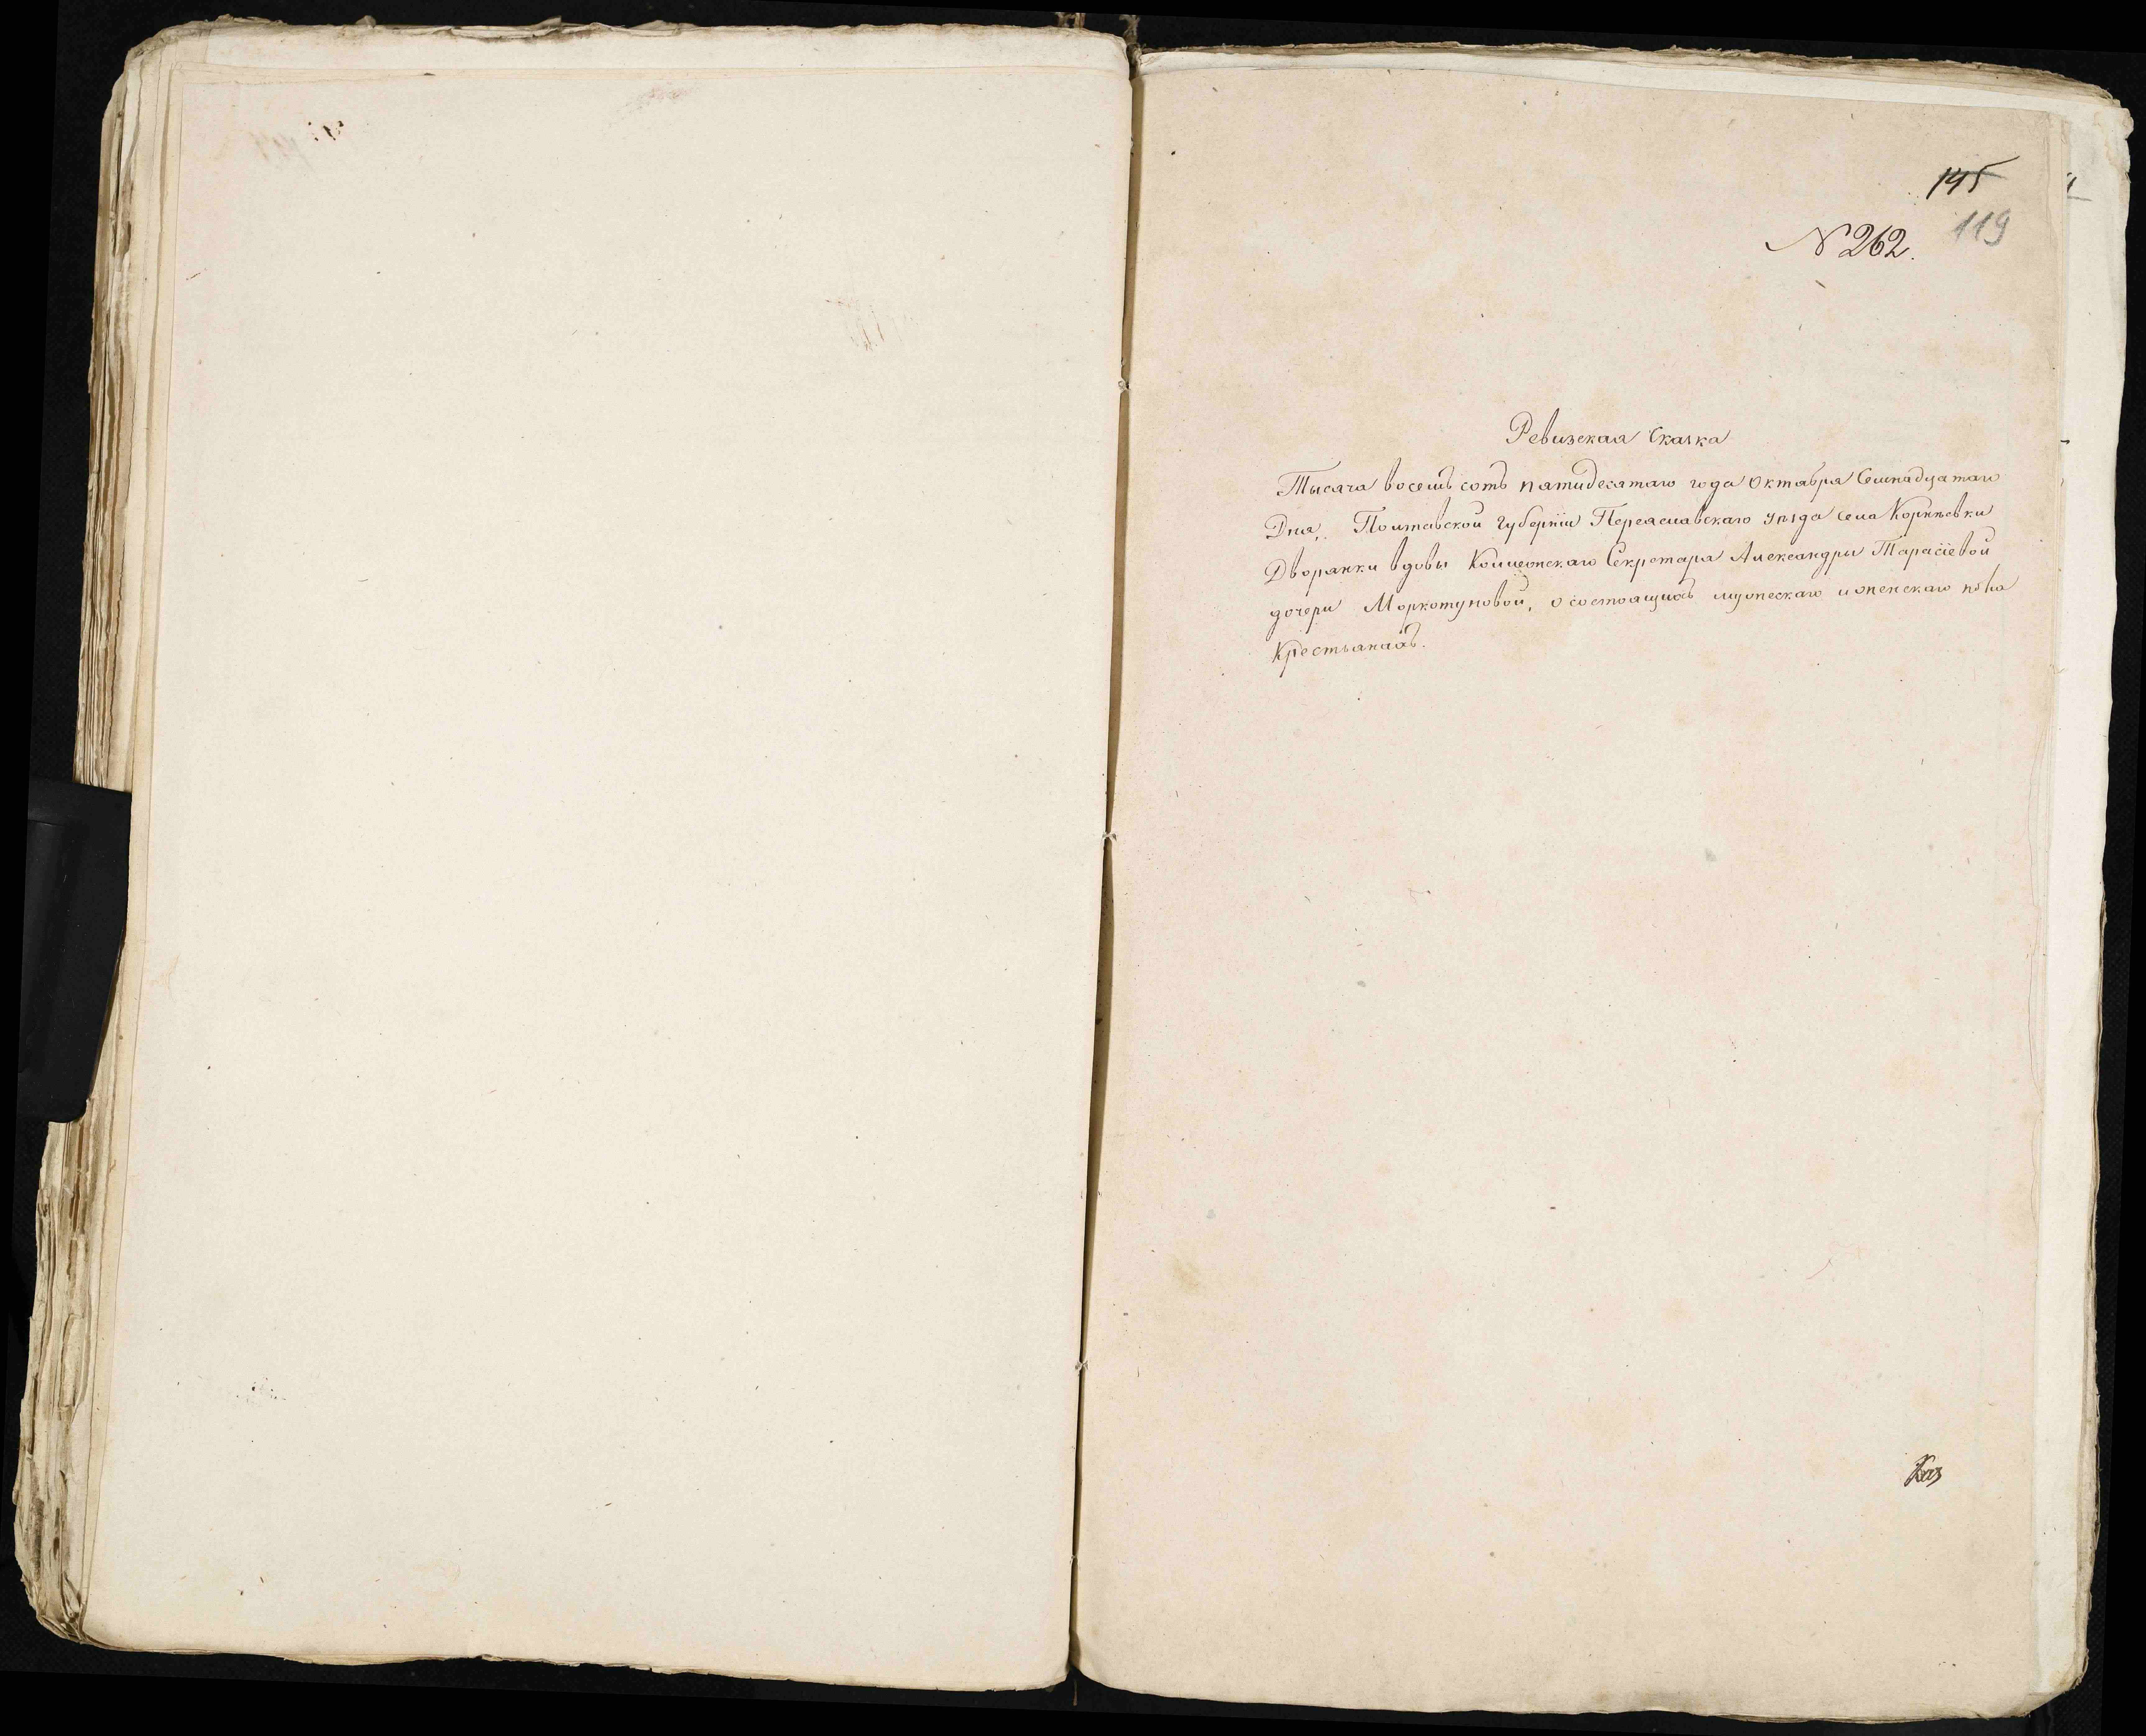 145
119
N 262.
Ревизская Сказка
Тысяча восемь сотъ пятидесятаго года Октября Семнадцатаго
Дня, Полтавской губерніи Переяславскаго уѣзда села Корнѣевки
Дворянки вдовы Коллежскаго Секретаря Александры Тарасіевой
дочери Моркотуновой, о состоящихъ мужескаго и женскаго пола
Крестьянахъ.